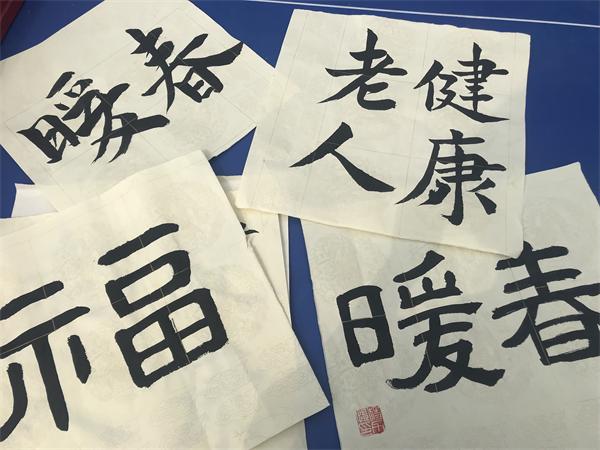 春暖
健康
老人
福
春暖